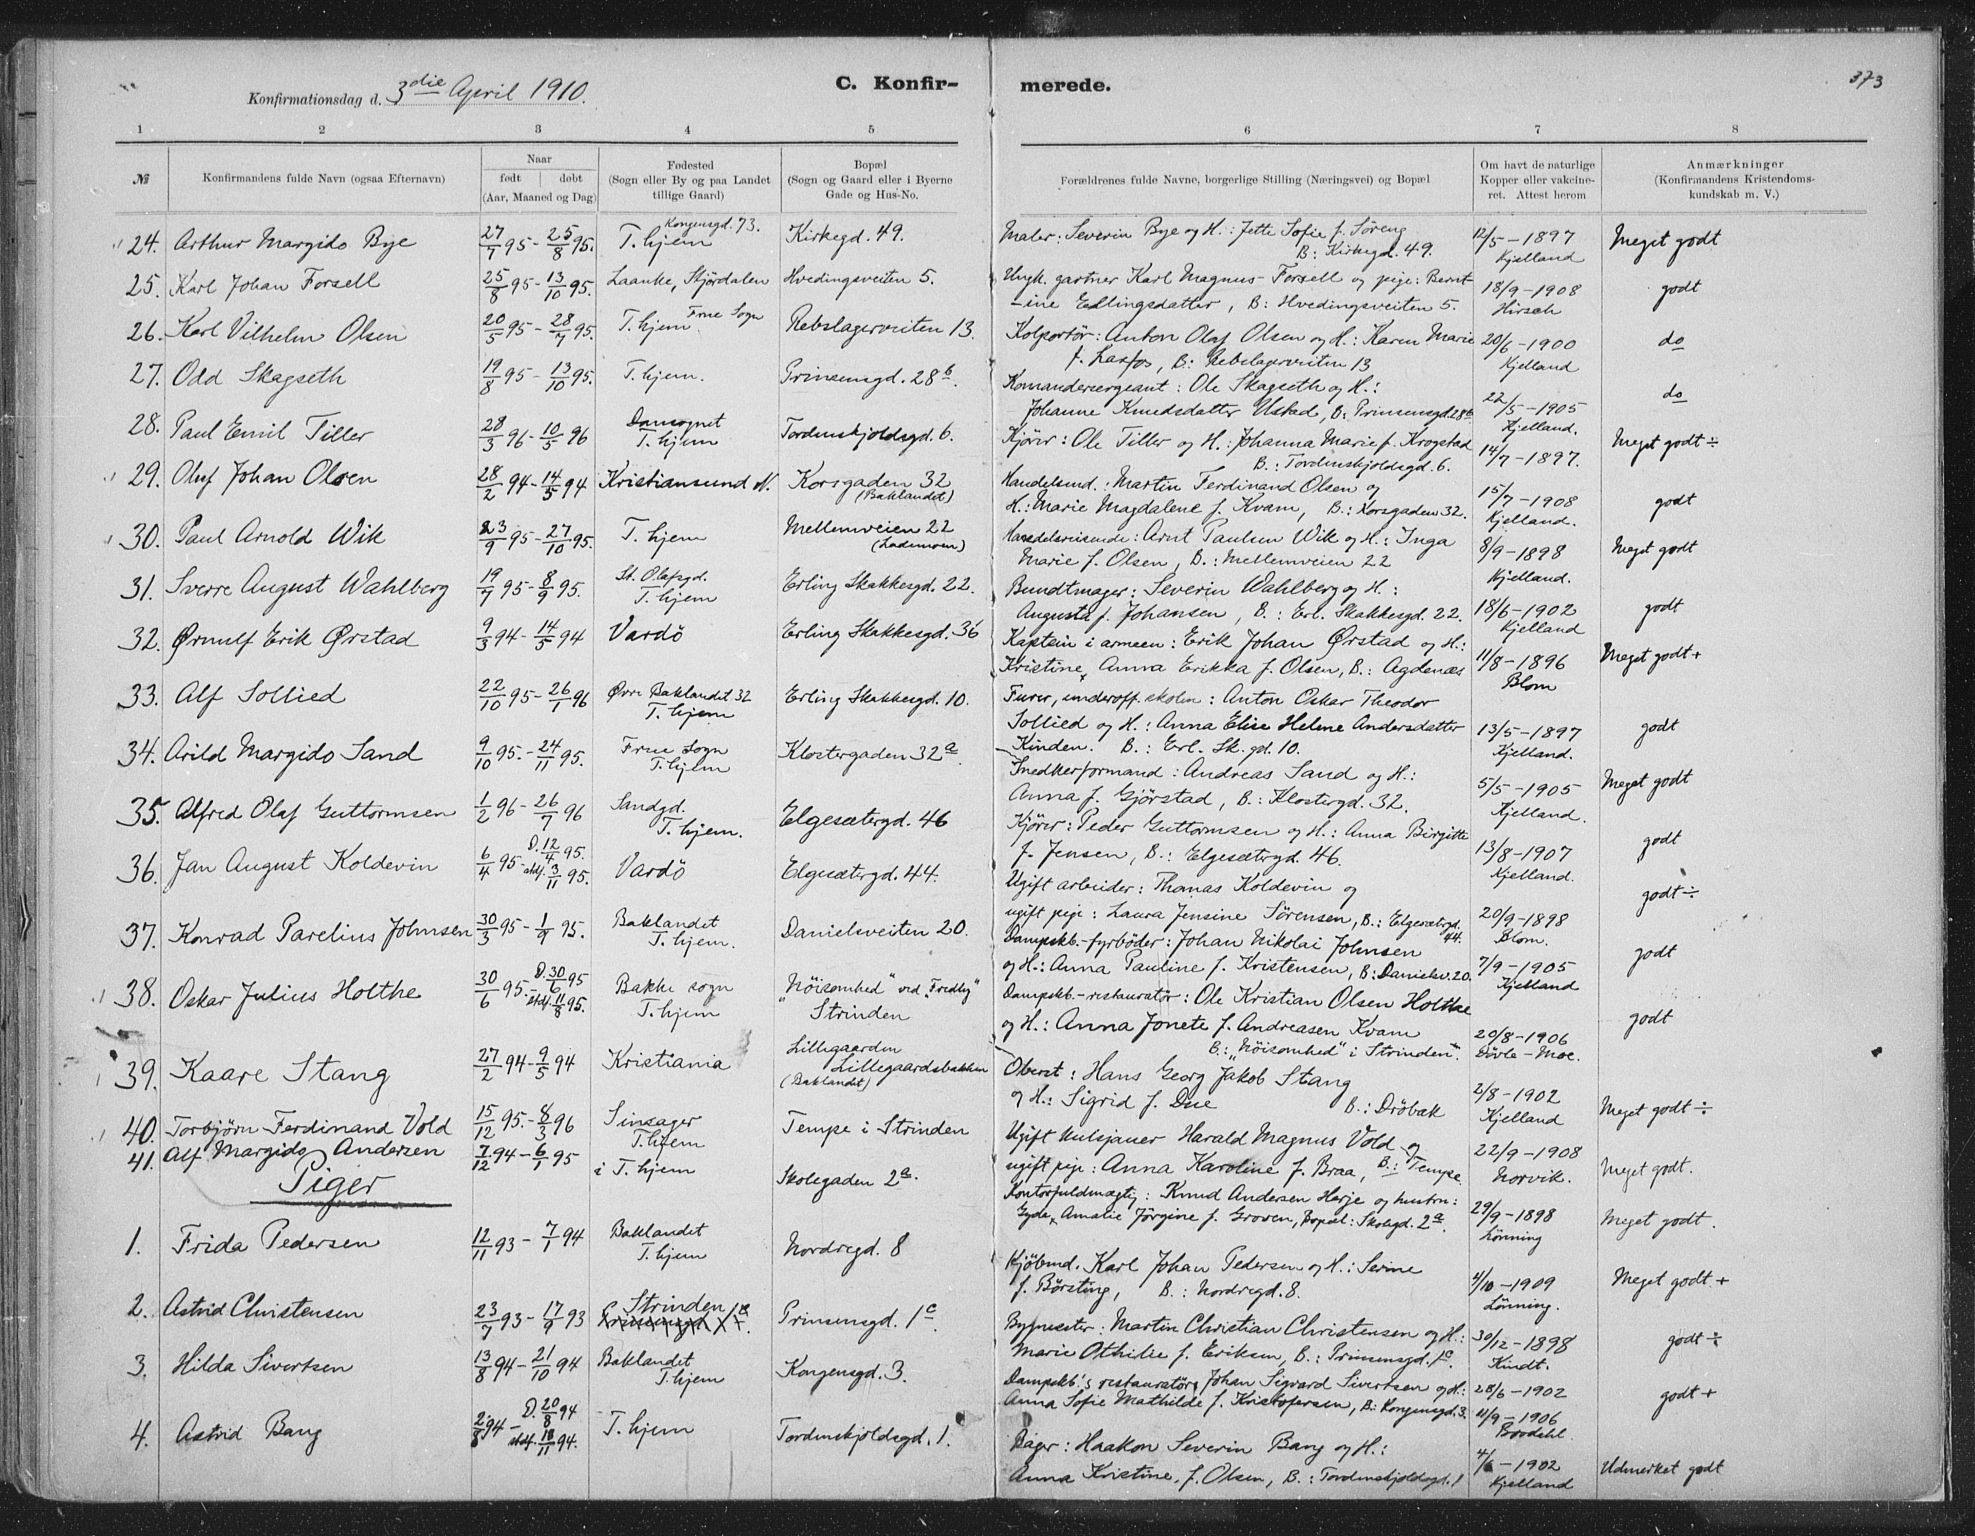 Konfirmationsdag d. 3die April 1910. C. Konfir- merede. 373
1 2 3 4 5 6 7 8
№ Konfirmandens fulde Navn (ogsaa Efternavn) Naar født døbt (Aar, Maaned og Dag) Fødested (Sogn eller By og paa Landet tillige Gaard) Bopæl (Sogn og Gaard eller i Byerne Gade og Hus-No. Forældrenes fulde Navne, borgerlige Stilling (Næringsvei) og Bopæl Om havt de naturlige Kopper eller vakcineret. Attest herom Anmærkninger (Konfirmandens Kristendomskundskab m. V.)
24. Arthur Margido Bye 27/7 95 - 25/8 95. Kongensgd. 73. T.hjem Kirkegd. 49. Maler: Severin Bye og H.: Jette Sofie f. Söreng B: Kirkegd. 49. 12/5 - 1897 Kjelland Meget godt
25. Karl Johan Forsell 25/8 95 - 13/10 95. Laanke, Stjördalen Hvedingsveiten 5. Ungk. gartner Karl Magnus Forsell og pige: Bernt-ine Edlingsdatter, B: Hvedingsveiten 5. 18/9 - 1908 Hirsch godt
26. Karl Vilhelm Olsen 20/5 95 - 28/7 95. T.hjem Frue Sogn Rebslagerveiten 13. Kolportör: Anton Olaf Olsen og H.: Karen Marie f. Laxfos, B: Rebslagerveiten 13 20/6 - 1900 Kjelland do
27. Odd Skagseth 19/8 95 - 13/10 95. T.hjem. Prinsensgd. 28b. Komandersergeant: Ole Skagseth og H.: Johanne Knudsdatter Ustad, B: Prinsensgd. 28b 22/5 - 1905 Kjelland. do
28. Paul Emil Tiller 28/3 96 - 10/5 96 Domsognet T.hjem Tordenskjoldsgd. 6. Kjörer: Ole Tiller og H.: Johanna Marie f. Krogstad B.: Tordenskjoldsgd. 6. 14/7 - 1897. Meget godt ÷
29. Oluf Johan Olsen 28/2 94 - 14/5 94 Kristiansund N. Korsgaden 32 (Baklandet) Handelsmd.: Martin Ferdinand Olsen og H.: Marie Magdalene f. Kvam, B.: Korsgaden 32. 15/7 - 1908 Kjelland. godt
30. Paul Arnold Wik 23/9 95 - 27/10 95. T.hjem Mellemveien 22 (Lademoen) Handelsreisende: Arnt Paulsen Wik og H.: Inga Marie f. Olsen, B.: Mellemveien 22 8/9 - 1898 Kjelland. Meget godt
31. Sverre August Wahlberg 19/7 95 - 8/9 95. St. Olafsgd. T.hjem Erling Skakkesgd. 22. Bundtmager: Severin Wahlberg og H.: Augusta f. Johansen, B.: Erl. Skakkesgd. 22. 18/6 - 1902 Kjelland godt
32. Ørnulf Erik Ørstad 9/3 94 - 14/5 94 Vardö Erling Skakkesgd. 36 Kaptein i armeen: Erik Johan Ørstad og H.: Kristine Anna Erikka f. Olsen, B.: Agdenæs 11/8 - 1896 Blom Meget godt +
33. Alf Sollied 22/10 95 - 26/1 96 Øvre Baklandet 32 T.hjem Erling Skakkesgd. 10. Furer, underoff. skolen: Anton Oskar Theodor Sollied og H.: Anna Elise Helene Andersdatter Kinden. B.: Erl. Sk. gd. 10. 13/5 - 1897 Kjelland. godt
34. Arild Margido Sand 9/10 95. - 24/11 95. Frue Sogn T.hjem Klostergaden 32a. Snedkerformand: Andreas Sand og H.: Anna f. Gjörstad, B.: Klostergd. 32. 5/5 - 1905 Kjelland. Meget godt
35. Alfred Olaf Guttormsen 1/2 96 - 26/7 96 Sandgd. T.hjem. Elgesætergd. 46 Kjörer: Peder Guttormsen og H.: Anna Birgitte f. Jensen, B.: Elgesætergd. 46. 13/8 - 1907 Kjelland. godt
36. Jan August Koldevin 6/4 95 - D. 12/4 95. stdf. 3/11 95. Vardö Elgesætergd. 44. Ugift arbeider: Thomas Koldevin og ugift pige: Laura Jensine Sörensen, B.: Elgesætergd. 44. 20/9 - 1898 Blom. godt ÷
37. Konrad Parelius Johnsen 30/3 95 - 1/9 95. Baklandet T.hjem. Danielsveiten 20. Dampskb.-fyrböder: Johan Nikolai Johnsen og H.: Anna Pauline f. Kristensen, B: Danielsv. 20. 7/9 - 1905 Kjelland godt
38. Oskar Julius Holthe 30/6 95 - D. 30/6 95 stdf. 11/8 95. Bakke sogn T.hjem "Nöisomhed" ved "Fredly" Strinden Dampskb.-restauratör: Ole Kristian Olsen Holthe og H.: Anna Jonete f. Andreasen Kvam B.: "Nöisomhed" i Strinden. 20/8 - 1906 Dövle-Moe. godt
39. Kaare Stang 27/2 94 - 9/5 94 Kristiania Lillegaarden Lillegaardsbakken (Baklandet) Oberst: Hans Georg Jakob Stang og H.: Sigrid f. Due B.: Dröbak 2/8 - 1902 Kjelland Meget godt ÷
40. Torbjörn Ferdinand Vold 15/12 95. - 8/3 96 Sinsager T.hjem Tempe i Strinden Ugift Harald Magnus Vold og ugift pige: Anna Karoline f. Braa, B.: Tempe 22/9 - 1908 Norvik. Meget godt.
41. Alf Margido Andersen 7/12 94 - 6/1 95 i T.hjem Skolegaden 2a. Kontorfuldmægtig: Knud Andersen Herje og hustru: Gyda Amalie Jörgine f. Groven, Bopæl: Skolegd. 2a. 29/9 - 1898 Lönning Meget godt.
Piger
1. Frida Pedersen 12/11 93 - 7/1 94 Baklandet T.hjem Nordregd. 8 Kjöbmd. Karl Johan Pedersen og H.: Serine f. Börsting, B.: Nordregd. 8. 4/10 - 1909 Lönning. Meget godt +
2. Astrid Christensen 23/7 93 - 17/9 93 Strinden Prinsensgd. 1c. Prinsensgd. 1c. Bygmester: Martin Christian Christensen og H.: Marie Othilie f. Eriksen, B.: Prinsensgd. 1c. 30/12 - 1898 Kindt. godt ÷
3. Hilda Sivertsen 13/8 94 - 21/10 94 Baklandet T.hjem Kongensgd. 3. Dampskb's restauratör Johan Sigvard Sivertsen og H.: Anna Sofie Mathilde f. Kristofersen, B.: Kongensgd. 3. 28/6 - 1902 godt +
4. Astrid Bang 2/8 94 - D. 20/8 94 stdf. 18/11 94. T.hjem Tordenskjoldsgd. 1. Bager: Haakon Severin Bang og H.: Anna Kristine, f. Olsen, B.: Tordenskjoldsgd. 1 11/9 - 1906 4/6 - 1902 Kjelland Udmerket godt